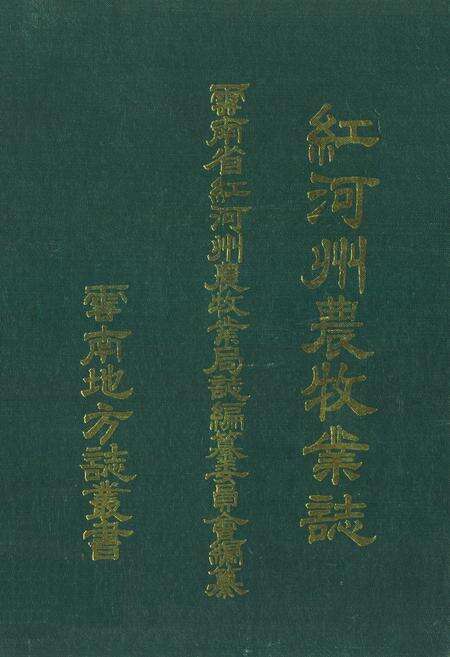 紅河州農牧業誌
雲南省紅河州農牧業局誌編纂委員會編纂
雲南地方誌叢書